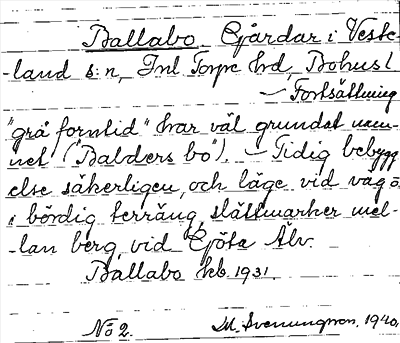 Ballabo Gårdar i Veste-
-land s:n, Inl Torpe hd, Bohusl
— Fortsättning
"grå forntid" har väl grundat nam-
net ("Balders bo"). — Tidig bebygg
else säkerligen, och läge vid väg o
i bördig terräng, slättmarker mel-
lan berg, vid Göta Älv.
Ballabo feb. 1931.
No 2. M. Svenungson. 1940.